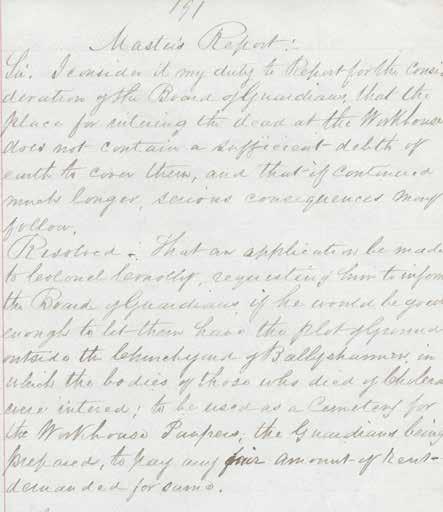 191
Master's Report:
Sir. I consider it my duty to Report for the consi-
deration of the Board of Guardians, that the
place for intering the dead at the Workhouse
does not contain a sufficient debth of
earth to cover them, and that if continued
much longer, serious consequences may
follow.
Resolved. That an application be made
to Colonel Conolly, requesting him to inform
the Board of Guardians if he would be good
enough to let them have the plot of Ground
outside the Churchyard of Ballyshannon, in
which the bodies of those who died of Cholera
were intered; to be used as a Cemetery for
the Workhouse Paupers; the Guardians being
prepared, to pay any fair amount of Rent-
demanded for same.